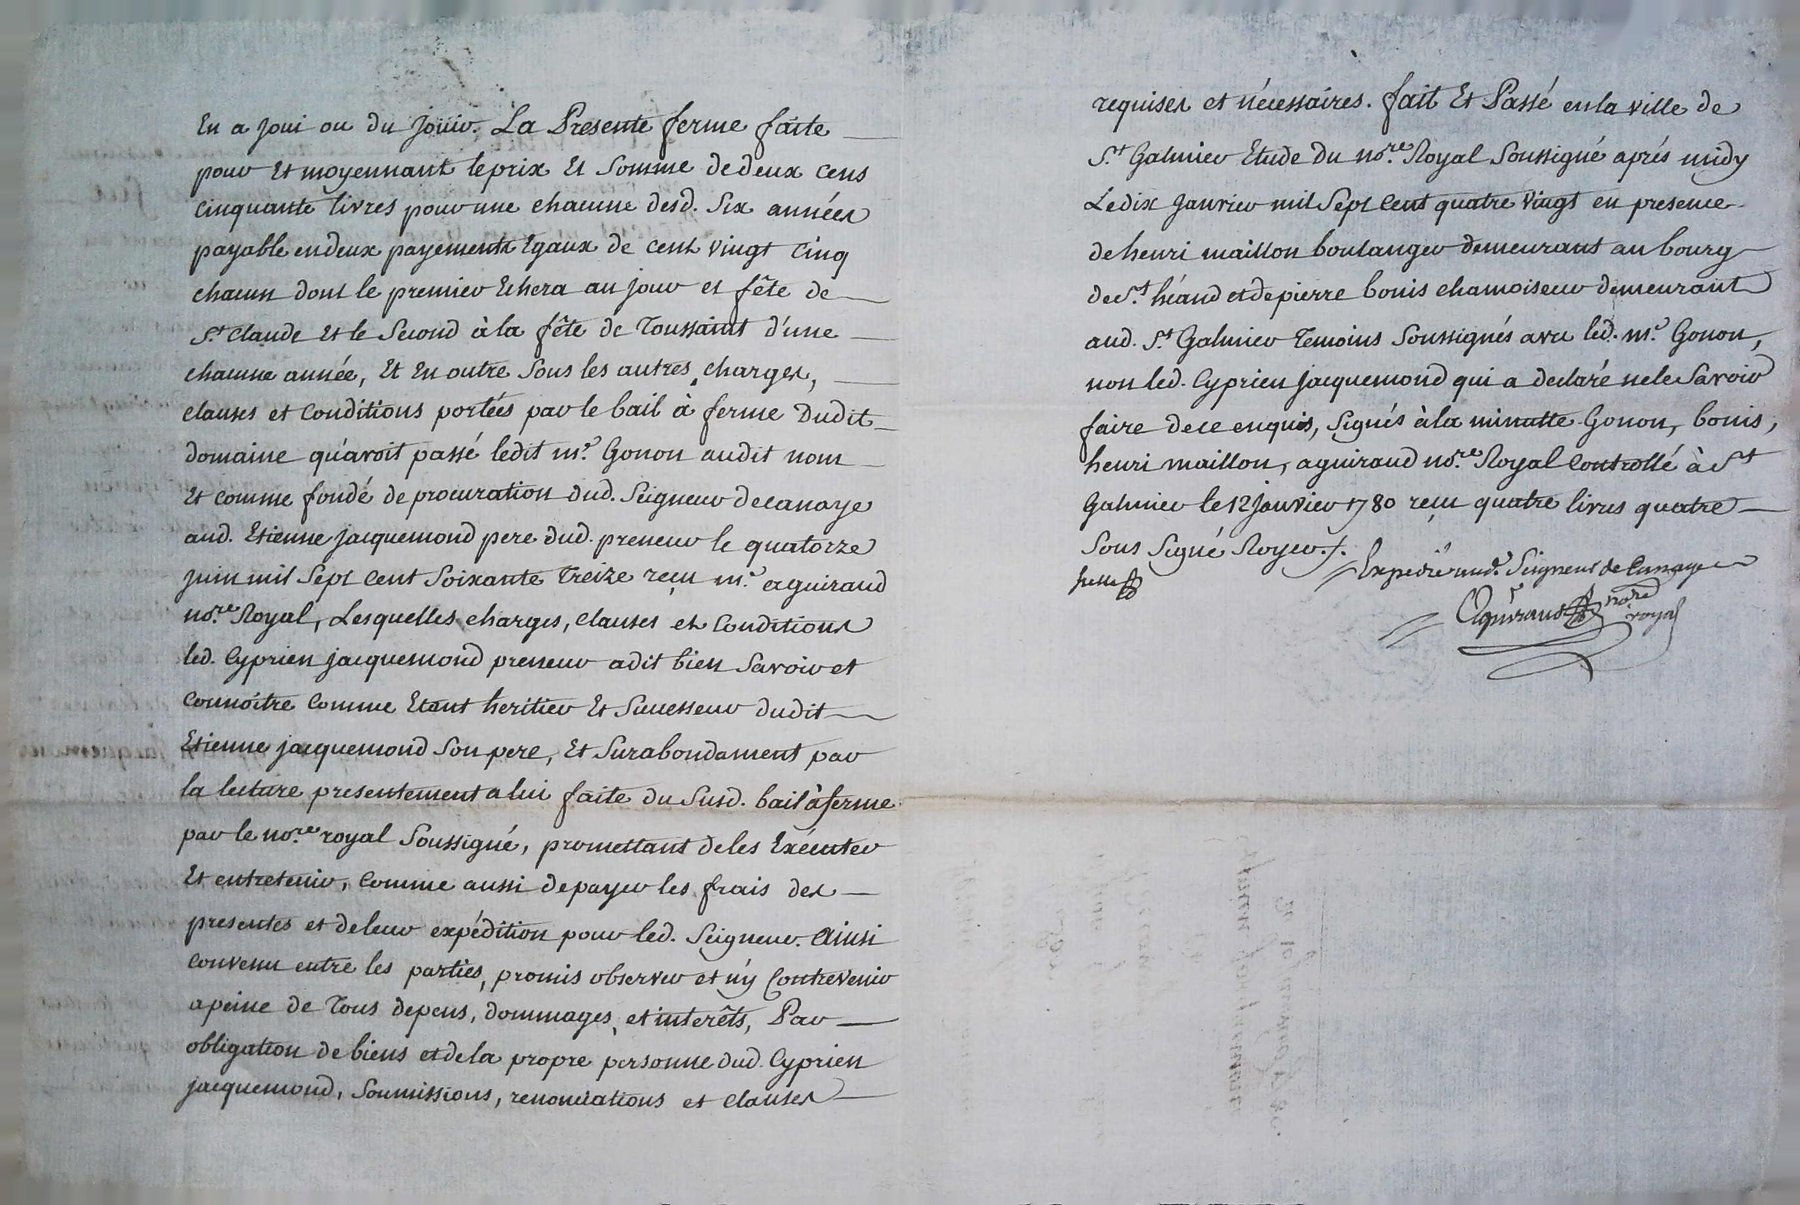 En a joui ou du jouir. La Presente ferme faite
pour Et moyennant le prix Et Somme de deux cens
cinquante livres pour une chacune desd. Six années
payable en deux payements Egaux de cent vingt cinq
chacun dont le premier Echera au jour et fête de
St. Claude Et le Second à la fête de Toussaint d'une
chacune année, Et En outre Sous les autres charges,
clauses et Conditions portées par le bail à ferme Dudit
domaine qu'avoit passé ledit me. Gonon audit nom
Et comme fondé de procuration dud. Seigneur de canaye
aud. Etienne jacquemond pere dud. preneur le quatorze
juin mil Sept Cent Soixante Treize reçu me. aguiraud
nore. Royal, Lesquelles charges, clauses et Conditions
led. Cyprien jacquemond preneur a dit bien Savoir et
Connoître Comme Etant heritier Et Successeur dudit
Etienne jacquemond Son pere, Et Surabondament par
la lecture presentement a lui faite du Susd. bail à ferme
par le nore. royal Soussigné, promettant de les Exécuter
Et entretenir, Comme aussi de payer les frais des
presentes et de leur expédition pour led. Seigneur. Ainsi
Convenu entre les parties, promis observer et n'y Contrevenir
a peine de Tous depens, dommages, et interêts, Par
obligation de biens et de la propre personne dud. Cyprien
jacquemond, Soumissions, renonciations et clauses
requises et nécessaires. fait Et Passé en la ville de
St. Galmier Etude du nore. Royal Soussigné aprés midy
Le dix Janvier mil Sept Cent quatre Vingt en presence
de henri maillon boulanger demeurant au bourg
de St. héand et de pierre bonis chamoiseur demeurant
aud. St. Galmier Temoins Soussignés avec led. me. Gonon,
non led. Cyprien Jacquemond qui a declaré ne le Savoir
faire de ce enquis, Signés à la minutte Gonon, bonis,
henri maillon, aguiraud nore. Royal Controllé à St
Galmier le 12 Janvier 1780 reçu quatre livres quatre
Sous Signé Royer./.
Expedié aud. Seigneur de Canaye
Aguiraud nore
royal